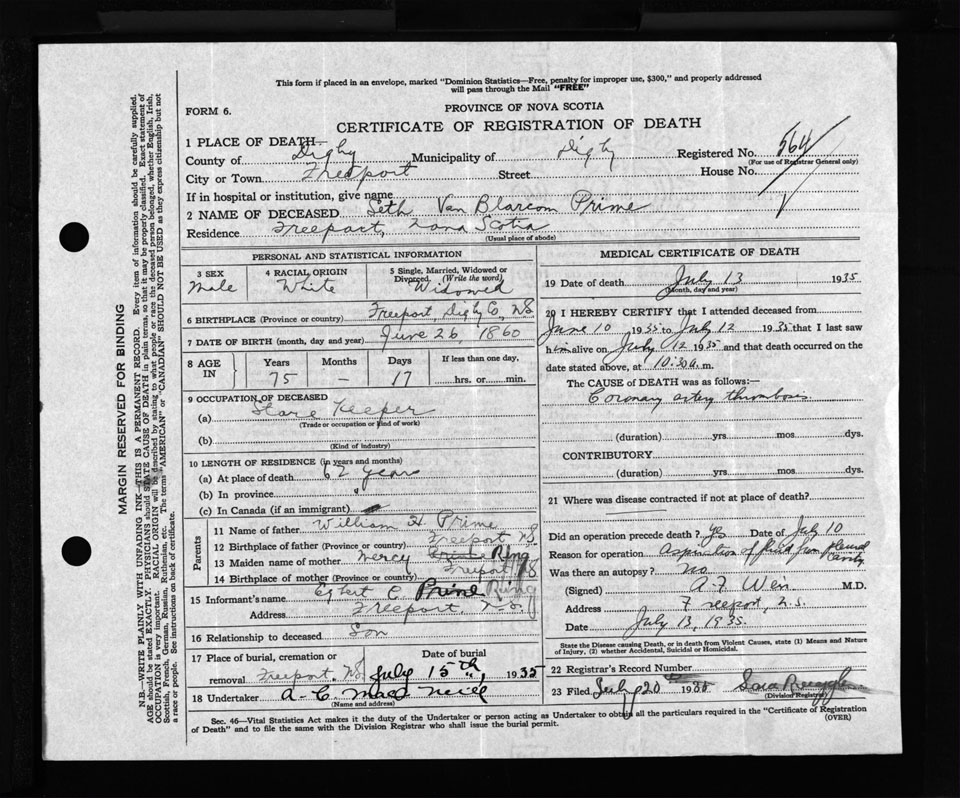 This form if placed in an envelope, marked "Dominion Statistics—Free, penalty for improper use, $300," and properly addressed
will pass through the Mail "FREE"
FORM 6.
PROVINCE OF NOVA SCOTIA
CERTIFICATE OF REGISTRATION OF DEATH
1 PLACE OF DEATH—
County of Digby Municipality of Digby Registered No. 564
(For use of Registrar General only)
City or Town Freeport Street House No.
If in hospital or institution, give name
2 NAME OF DECEASED Seth Van Blarcom Prime
Residence Freeport, Nova Scotia
(Usual place of abode)
PERSONAL AND STATISTICAL INFORMATION
3 SEX 4 RACIAL ORIGIN 5 Single, Married, Widowed or
Divorced. (Write the word)
Male White Widowed
6 BIRTHPLACE (Province or country) Freeport, Digby Co, N.S.
7 DATE OF BIRTH (month, day and year) June 26 1860
8 AGE IN Years Months Days If less than one day.
75 — 17 hrs. or min.
9 OCCUPATION OF DECEASED
(a) Store Keeper
(Trade or occupation or kind of work)
(b)
(Kind of industry)
10 LENGTH OF RESIDENCE (in years and months)
(a) At place of death 62 years
(b) In province "
(c) In Canada (if an immigrant)
Parents
11 Name of father William H Prime
12 Birthplace of father (Province or country) Freeport N.S.
13 Maiden name of mother Mercy Ring
14 Birthplace of mother (Province or country) Freeport N S
15 Informant's name Egbert C. Prime
Address Freeport, N.S.
16 Relationship to deceased Son
17 Place of burial, cremation or Date of burial
removal Freeport, N.S. July 15th, 1935
18 Undertaker A. C.
(Name and address)
MEDICAL CERTIFICATE OF DEATH
19 Date of death July 13 1935
(Month, day and year)
20 I HEREBY CERTIFY that I attended deceased from
June 10 1935 to July 12 1935 that I last saw
him alive on July 12 1935 and that death occurred on the
date stated above, at 10.30 a. m.
The CAUSE OF DEATH was as follows:—
Coronary artery thrombosis
(duration) yrs. mos. dys.
CONTRIBUTORY
(duration) yrs. mos. dys.
21 Where was disease contracted if not at place of death?
Did an operation precede death? Yes Date of July 10
Reason for operation Aspiration of fluid from pleural cavity
Was there an autopsy? No
(Signed) A. F. Weir M.D.
Address Freeport, N.S.
Date July 13, 1935.
State the Disease causing Death, or in death from Violent Causes, state (1) Means and Nature
of Injury, (2) whether Accidental, Suicidal or Homicidal.
22 Registrar's Record Number
23 Filed July 20 1935 Sara
(Division Registrar)
Sec. 46—Vital Statistics Act makes it the duty of the Undertaker or person acting as Undertaker to obtain all the particulars required in the "Certificate of Registration
of Death" and to file the same with the Division Registrar who shall issue the burial permit. (OVER)
MARGIN RESERVED FOR BINDING
N.B.—WRITE PLAINLY WITH UNFADING INK—THIS IS A PERMANENT RECORD. Every item of information should be carefully supplied.
AGE should be stated EXACTLY. PHYSICIANS should STATE CAUSE OF DEATH in plain terms, so that it may be properly classified. Exact statement of
OCCUPATION is very important. RACIAL ORIGIN will be described by stating to what people or race the deceased person belonged, whether English, Irish,
Scottish, French, German, Russian, Ruthenian, etc. The terms "AMERICAN" or "CANADIAN" SHOULD NOT BE USED as they express citizenship but not
a race or people. See instructions on back of certificate.